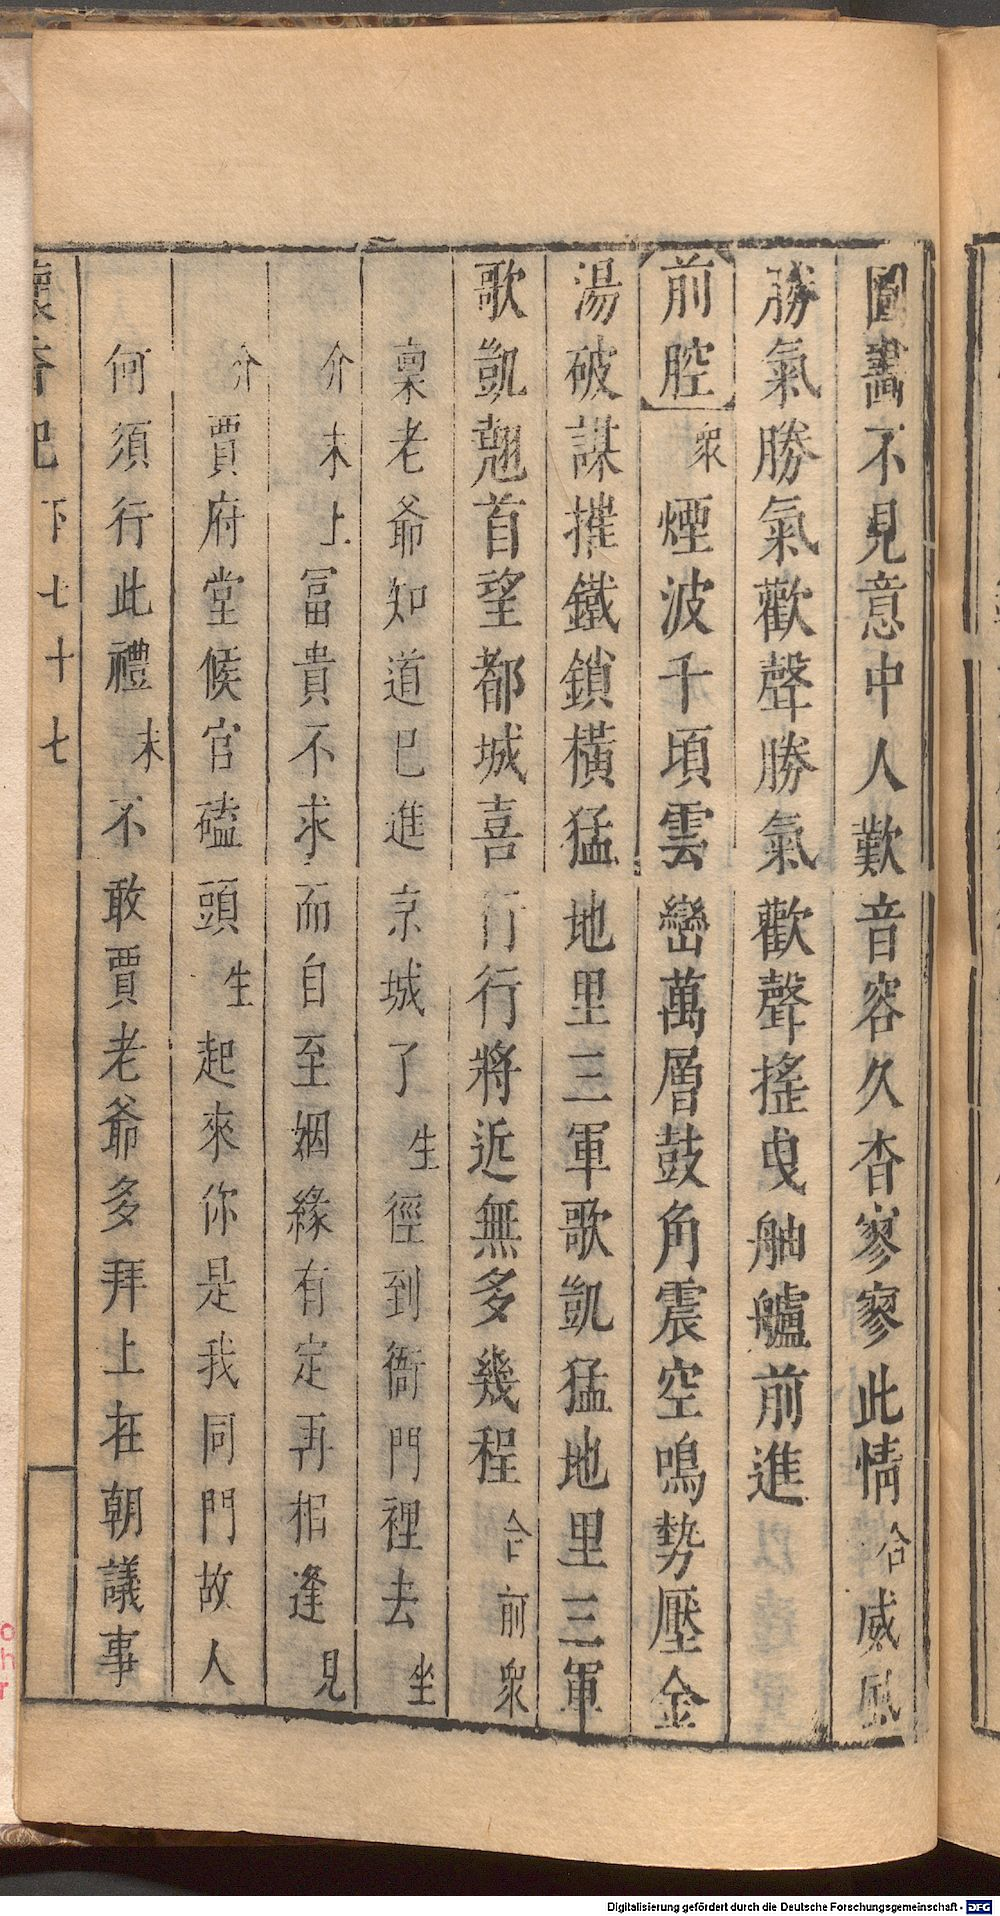 圖畫不見意中人歎音容久杳寥寥此情合威風
勝氣勝氣歡聲勝氣歡聲搖曳舳艫前進
前腔衆煙波千頃雲巒萬層鼓角震空鳴勢壓金
湯破謀摧鐵鎖橫猛地里三軍歌凱猛地里三軍
歌凱翹首望都城喜行行將近無多幾程合前衆
稟老爺知道已進京城了生徑到衙門裡去坐
介末上冨貴不求而自至姻緣有定再相逢見
介賈府堂候官磕頭生起來你是我同門故人
何須行此禮末不敢賈老爺多拜上在朝議事
懷香記下七十七
Digitalisierung gefördert durch die Deutsche Forschungsgemeinschaft - DFG